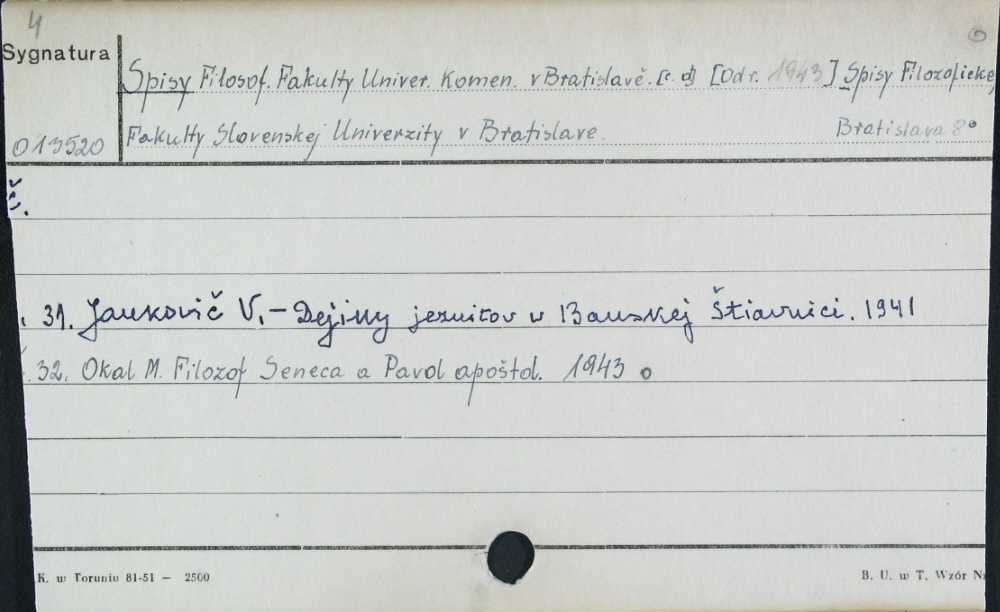 4
Sygnatura
Spisy Filosof. Fakulty Univer. Komen. v Bratislavě. [c. d] [Od r. 1943] Spisy Filozofickej
013520 Fakulty Slovenskej Univerzity v Bratislave. Bratislava 8°
Č.
31. Jankovič V. – Dejiny jezuitov v Banskej Štiavnici. 1941
32. Okal M. Filozof Seneca a Pavol apoštol. 1943
K. w Toruniu 81-51 — 2500 B. U. w T. Wzór N